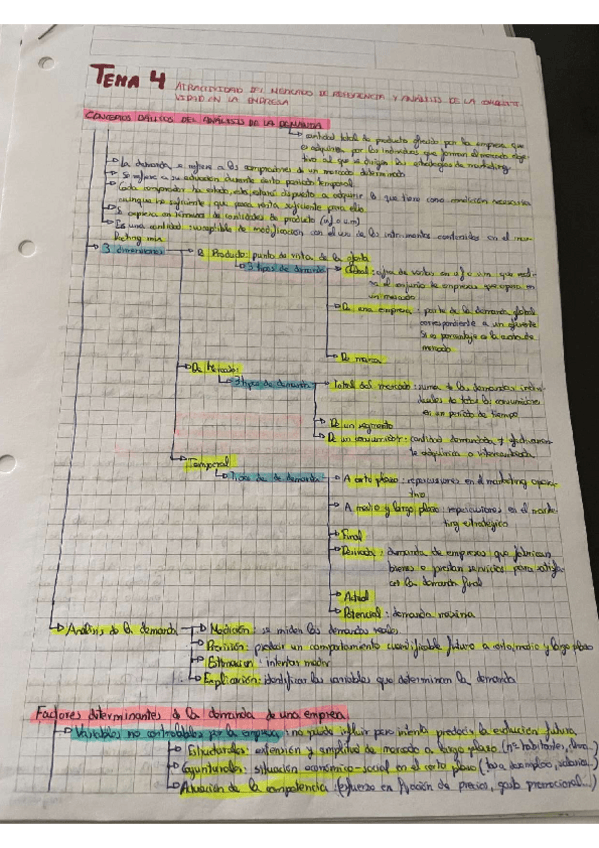 TEMA 4 ATRACTIVIDAD DEL MERCADO DE REFERENCIA Y ANÁLISIS DE LA
VIDAD EN LA EMPRESA
CONCEPTOS BÁSICOS DEL ANÁLISIS DE LA DEMANDA
cantidad total de producto ofrecido por la empresa que
adquirirse por los individuos que forman el mercado
tivo al que se dirigen las estrategias de marketing.
La demanda se refiere a los compradores de un mercado determinado
Se refiere a su actuación durante cierto periodo temporal
Cada comprador ha estado, está, estará dispuesto a adquirir lo que tiene como condición necesaria
aunque no suficiente que posea renta suficiente para ello
Se expresa en términos de cantidades de producto (u.f o u.m)
Es una cantidad susceptible de modificación con el uso de los instrumentos contenidos en el mar-
keting mix
3 dimensiones
Producto: punto de vista de la oferta
3 tipos de demanda
Global: cifra de ventas en u.f o u.m que
el conjunto de empresas que opera en
un mercado
De una empresa: parte de la demanda global
correspondiente a un oferente
Si es porcentaje es la cuota de
mercado
De marca
De Mercado:
3 tipos de demanda
Total del mercado: suma de las demandas indivi-
duales de todos los consumidores
en un periodo de tiempo
De un segmento
De un consumidor: cantidad demandada y
te adquirida o intencionada
Temporal
Tipos de demanda
A corto plazo: repercusiones en el marketing opera-
tivo
A medio y largo plazo: repercusiones en el marke-
ting estratégico
Final
Derivada: demanda de empresas que fabrican
bienes o prestan servicios para satisfa-
cer la demanda final
Actual
Potencial: demanda máxima
Análisis de la demanda
Medición: se miden las demandas reales
Previsión: predecir un comportamiento cuantificable futuro a corto, medio y largo plazo
Estimación: intentar medir
Explicación: identificar las variables que determinan la demanda
Factores determinantes de la demanda de una empresa
Variables no controlables por la empresa: no puede influir pero intenta predecir la evolución futura
Estructurales: extensión y amplitud de mercado a largo plazo (nº habitantes,
Coyunturales: situación económico-social en el corto plazo (tasa desempleo, salarios...)
Actuación de la competencia (esfuerzo en fijación de precios, gasto promocional...)